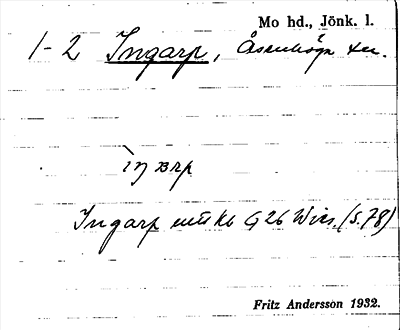 Mo hd., Jönk. l.
1-2 Ingarp, Åsenhöga sn.
ìŋarp
Ingarp enl kb G26 Wirs. (s. 78)
Fritz Andersson 1932.